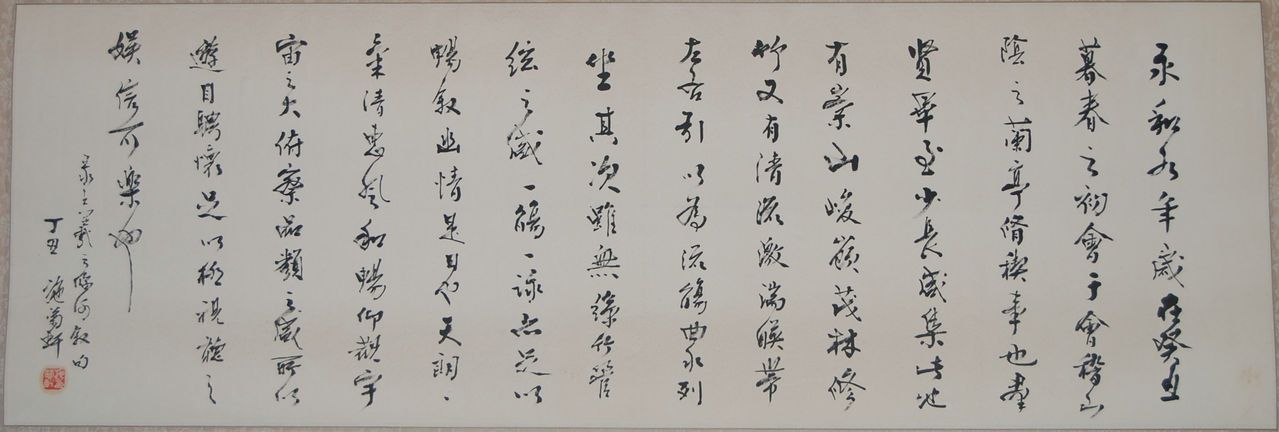 永和九年歲在癸丑
暮春之初會于會稽山
陰之蘭亭脩稧事也群
賢畢至少長咸集此地
有崇山峻嶺茂林修
竹又有清流激湍映帶
左右引以為流觴曲水列
坐其次雖無絲竹管
絃之盛一觴一詠亦足以
暢敘幽情是日也天朗
氣清惠風和暢仰觀宇
宙之大俯察品類之盛所以
遊目騁懷足以極視聽之
娛信可樂也
王羲之
丁丑